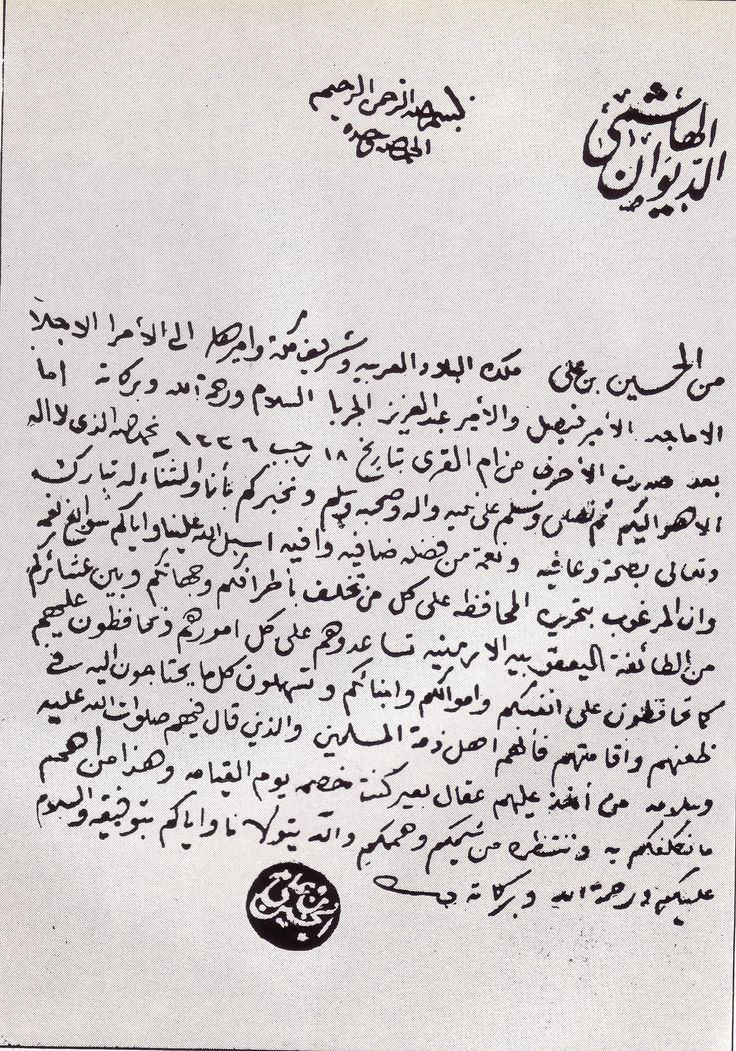 الديوان الهاشمي
بسم الله الرحمن الرحيم
الحمد لله وحده
من الحسين بن علي ملك البلاد العربيه وشريف مكة واميرها الى الأمرا الاجلا
الاماجد الأمير فيصل والأمير عبدالعزيز الجربا السلام ورحمة الله وبركاته اما
بعد صدرت الأحرف من ام القرى بتاريخ ١٨ رجب ١٣٣٦ نحمد الله الذي لا اله
الا هو اليكم ثم نصلي ونسلم على نبيه واله وصحبه وسلم ونخبركم بأنا والثناء له تبارك
وتعالى بصحة وعافيه ونعمة من فضله ضافيه وافيه اسبل الله علينا واياكم سوابغ نعمه
وان المرغوب بتحريره المحافظه على كل من تخلف بأطرافكم وجهاتكم وبين عشائركم
من الطائفة اليعقوبيه الارمنيه تساعدوهم على كل امورهم وتحافظون عليهم
كما تحافظون على انفسكم واموالكم وابنائكم وتسهلون كل ما يحتاجون اليه في
ظعنهم واقامتهم فانهم اهل ذمة المسلمين والذي قال فيهم صلوات الله عليه
وسلامه من أخذ عليهم عقال بعير كنت خصمه يوم القيامه وهذا من اهم
ما نكلفكم به وننتظره من شيمكم وهممكم والله يتولانا واياكم بتوفيقه والسلام
عليكم ورحمة الله وبركاته
الحسين بن علي